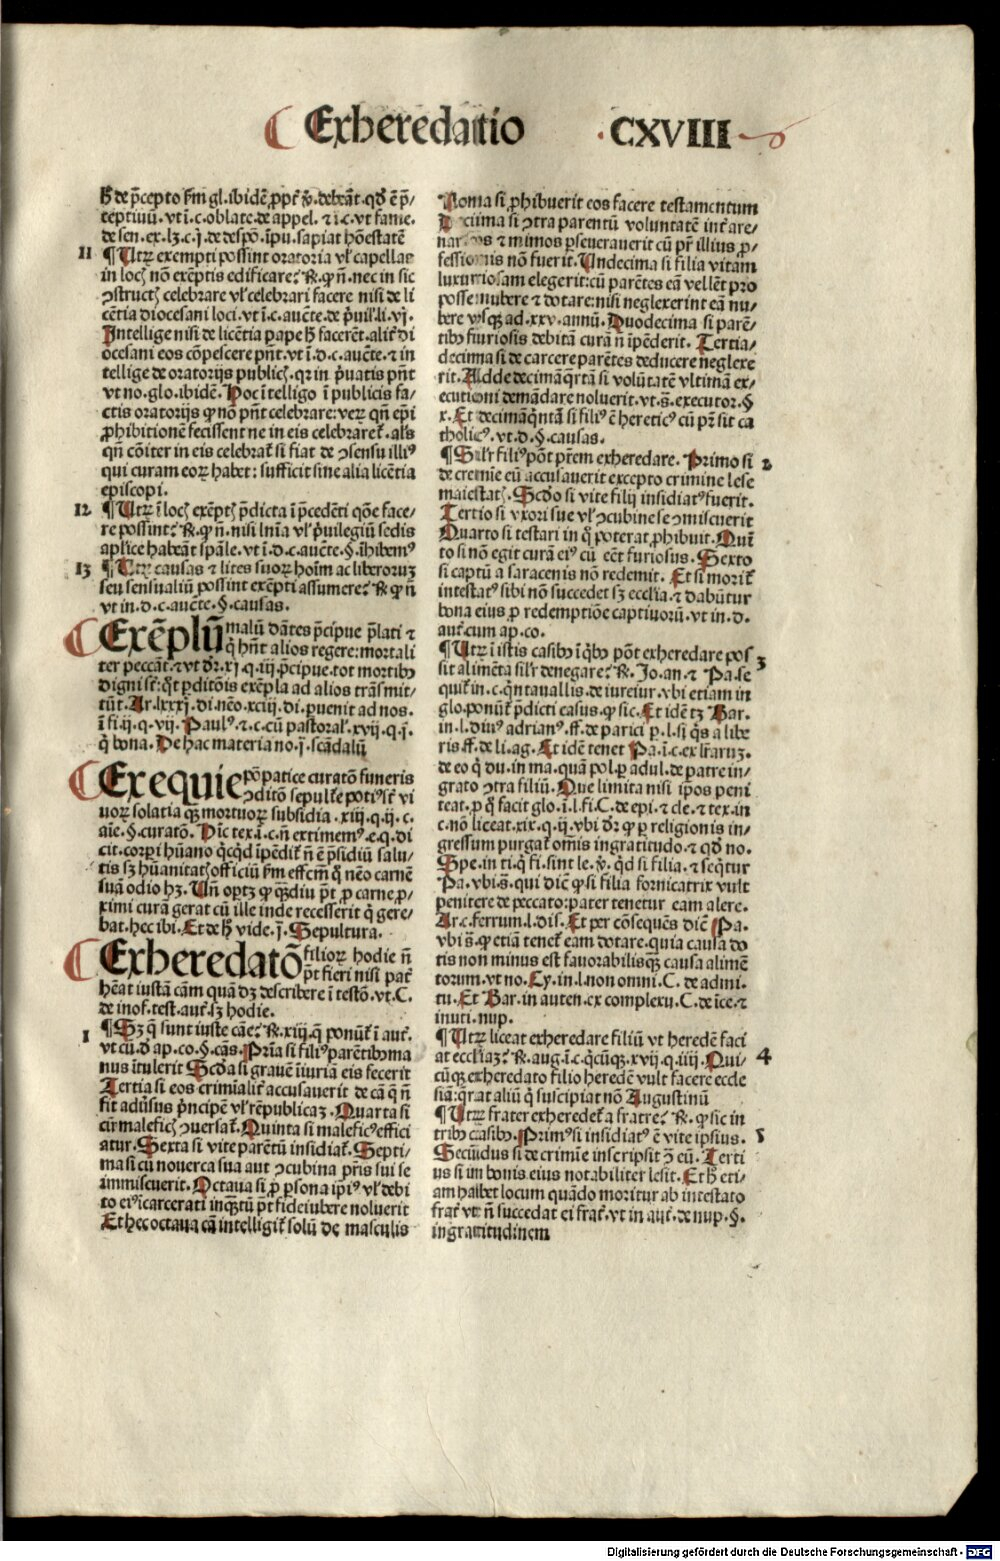 Exheredatio CXVIII
ħ de p̄cepto ẜm gl. ibidē ꝓpt̄ ꝟ. debeāt. qđ ē p̄/
ceptiuū. vt ī.c. oblate. de appel. ⁊ ī.c. vt fame.
de sen. ex. lꝫ.c.j. de despō. īpu. sapiat hōestatē
11 ¶ Utꝝ exempti possint oratoria vl̕ capellas
in locꝭ nō exēptis edificare? ℞. ꝙ n̄. nec in sic
ꝯstructꝭ celebrare vl̕ celebrari facere nisi de li
cētia diocesani loci. vt ī.c. auctē. de p̄uil̕. li. vj.
Intellige nisi de licētia pape ħ facerēt. alit̄ di
ocesani eos cōpescere pn̄t. vt ī.d.c. auctē. ⁊ in
tellige de oratorijs publicꝭ. qr in p̄uatis pn̄t
vt no. glo. ibidē. Hoc ītelligo ī publicis fa/
ctis oratorijs ꝙ nō pn̄t celebrare: veꝝ qn̄ epī
ꝓhibitionē fecissent ne in eis celebraret̄. al̕s
qn̄ cōiter in eis celebrat̄ si fiat de ꝯsensu illiꝰ
qui curam eoꝝ habet: sufficit sine alia licētia
episcopi.
12 ¶ Utꝝ ī locꝭ exēptꝭ p̄dicta ī p̄cedēti qōe face/
re possint? ℞. ꝙ n̄. nisi lr̄ia vl̕ p̄uilegiū sedis
apl̕ice habeāt sp̄ale. vt ī.d.c. auctē. §. īhibemꝰ
13 ¶ Utꝝ causas ⁊ lites suoꝝ hoīm ac liberorum
seu sensualiū possint exēpti assumere? ℞ ꝙ n̄
vt in.d.c. auctē. §. causas.
Exēplū malū dātes p̄cipue p̄lati ⁊
q̄ hn̄t alios regere: mortali
ter peccāt. ⁊ vt dr̄. xj. q. iij. p̄cipue. tot mortibꝰ
digni sūt: q̄t ꝑditōis exēpla ad alios trāsmit/
tūt. Ar. lxxxj. di. nēo. xciij. di. ꝑuenit ad nos.
ī fi. ij. q. vij. Paulꝰ. ⁊ c. cū pastoral̕. xvij. q. j.
q̄ bona. De hac materia no. j. scādalū
Exequie pōpatice curatō funeris
ꝯditō sepult̄e potiꝰ sūt vi
uoꝝ solatia qꝫ mortuoꝝ subsidia. xiij. q. ij. c.
aīe. §. curatō. Hic tex. ī.c. n̄ extimemꝰ. e.q. di
cit. corpori hūano qͥcqͥd īpēdit̄ n̄ ē p̄sidiū salu/
tis sꝫ hūanitatꝭ officiū ẜm effectū q̄ nēo carnē
suā odio hꝫ. Un̄ oportꝫ ꝙ qꝫdiu pōt ꝓ carne ꝓ/
ximi curā gerat cū ille inde recesserit q̄ gere/
bat. hec ibi. Et de ħ vide. j. Sepultura.
Exheredatō filioꝝ hodie n̄
pōt fieri nisi pat̄
hēat iustā cām quā dꝫ describere ī testō. vt. C.
de inof. test. aut̄. sꝫ hodie.
1 ¶ Sꝫ q̄ sunt iuste cāe? ℞. xiij. q̄ ponūt̄ ī aut̄.
vt cū. đ ap. co. §. cās. Prīa si filiꝰ parētibꝰ ma
nus ītulerit Scđa si grauē iniuriā eis fecerit
Tertia si eos crimīalit̄ accusauerit de cā q̄ n̄
fit aduersus p̄ncipē vl̕ rēpublicaꝫ. Quarta si
cū maleficꝭ ꝯuersat̄. Quinta si maleficꝰ effici
atur. Sexta si vite parētū insidiat̄. Septi/
ma si cū nouerca sua aut ꝯcubina pr̄is sui se
immiscuerit. Octaua si ꝓ ꝑsona ip̄iꝰ vl̕ debi
to eiꝰ īcarcerati inqꝫtū pōt fideiubere noluerit
Et hec octaua cā intelligit̄ solū de masculis
Nona si ꝓhibuerit eos facere testamentum
Decima si ꝯtra parentū voluntatē int̄ are/
narios ⁊ mimos ꝑseuerauerit cū pr̄ illius ꝓ/
fessionis nō fuerit. Undecima si filia vitam
luxuriosam elegerit: cū parētes eā vellēt pro
posse nubere ⁊ dotare: nisi neglexerint eā nu/
bere vsqꝫ ad. xxv. annū. Duodecima si parē/
tibꝰ furiosis debitā curā n̄ īpēderit. Tertia/
decima si de carcere parētes deducere neglexe
rit. Adde decimāq̄rtā si volūtatē vltimā ex/
ecutioni demādare noluerit. vt. s̄. executor. §
x. Et decimāq̄ntā si filiꝰ ē hereticꝰ cū pr̄ sit ca
tholicꝰ. vt. d. §. causas.
2 ¶ Sil̕r filiꝰ pōt pr̄em exheredare. Primo si
de crimīe eū accusauerit excepto crimine lese
maiestatꝭ. Scđo si vite filij insidiatꝰ fuerit.
Tertio si vxori sue vl̕ ꝯcubine se ꝯmiscuerit
Quarto si testari in q̄ poterat ꝓhibuit. Quī
to si nō egit curā eiꝰ cū eēt furiosus. Sexto
si captū a saracenis nō redemit. Et si morit̄
intestatꝰ sibi nō succedet sꝫ eccl̕ia ⁊ dabūtur
bona eius ꝓ redemptiōe captiuorū. vt in. d.
aut̄. cum ap. co.
3 ¶ Utꝝ ī istis casibꝰ ī qͥbꝰ pōt exheredare pos
sit alimēta sil̕r denegare? ℞. Jo. an. ⁊ Pa. se
quit̄ in.c. q̄ntauallis. de iureiur. vbi etiam in
glo. ponūt̄ p̄dicti casus. ꝙ sic. Et idē tꝫ Bar.
in. l. diuꝰ adrianꝰ. ff. de parici. ꝑ. l. si q̄s a libe
ris ff. de li. ag. Et idē tenet Pa. ī.c. ex lr̄aruꝫ.
de eo q̄ du. in ma. quā pol. ꝑ adul. de patre in/
grato ꝯtra filiū. Que limita nisi ip̄os peni
teat. ꝑ q̄ facit glo. ī. l. fi. C. de epi. ⁊ cle. ⁊ tex. in
c. nō liceat. xix. q. ij. vbi dr̄ ꝙ ꝑ religionis in/
gressum purgat̄ omīs ingratitudo. ⁊ qđ no.
Spe. in ti. q̄ fi. sint le. ꝟ. qͥd si filia. ⁊ seq̄tur
Pa. vbi. s̄. qui dic̄ ꝙ si filia fornicatrix vult
penitere de peccato: pater tenetur eam alere.
Ar. c. ferrum. l. dis. Et per cōsequēs dic̄ Pa.
vbi s̄. ꝙ etiā tenet̄ eam dotare. quia causa do
tis non minus est fauorabilis qꝫ causa alimē
torum. vt no. Cy. in. l. non omni. C. de admi.
tu. Et Bar. in auten. ex complexu. C. de īce. ⁊
inuti. nup.
4 ¶ Utꝝ liceat exheredare filiū vt heredē faci
at eccl̕iaꝫ? ℞. aug. ī.c. q̄cūqꝫ. xvij. q. iiij. Qui/
cūqꝫ exheredato filio heredē vult facere eccle
siā: q̄rat aliū q̄ suscipiat nō Augustinū
5 ¶ Utꝝ frater exheredet̄ a fratre? ℞. ꝙ sic in
tribꝰ casibꝰ. Primꝰ si insidiatꝰ ē vite ipsius.
Secūdus si de crimīe inscripsit ꝯ̄ eū. Terti
us si in bonis eius notabiliter lesit. Et ħ eti/
am habet locum quādo moritur ab intestato
frat̄ vt n̄ succedat ei frat̄. vt in aut̄. de nup. §.
ingratitudinem
Digitalisierung gefördert durch die Deutsche Forschungsgemeinschaft - DFG